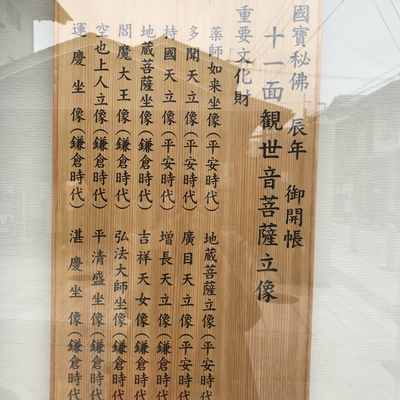 國寶秘佛 辰年 御開帳
十一面観世音菩薩立像
重要文化財
薬師如来坐像(平安時代) 地蔵菩薩立像(平安時代
多聞天立像(平安時代) 廣目天立像(平安時代
持國天立像(平安時代) 増長天立像(鎌倉時代
地蔵菩薩坐像(鎌倉時代) 吉祥天女像(鎌倉時代
閻魔大王像(鎌倉時代) 弘法大師坐像(鎌倉時代
空也上人立像(鎌倉時代) 平清盛坐像(鎌倉時代
運慶坐像(鎌倉時代) 湛慶坐像(鎌倉時代